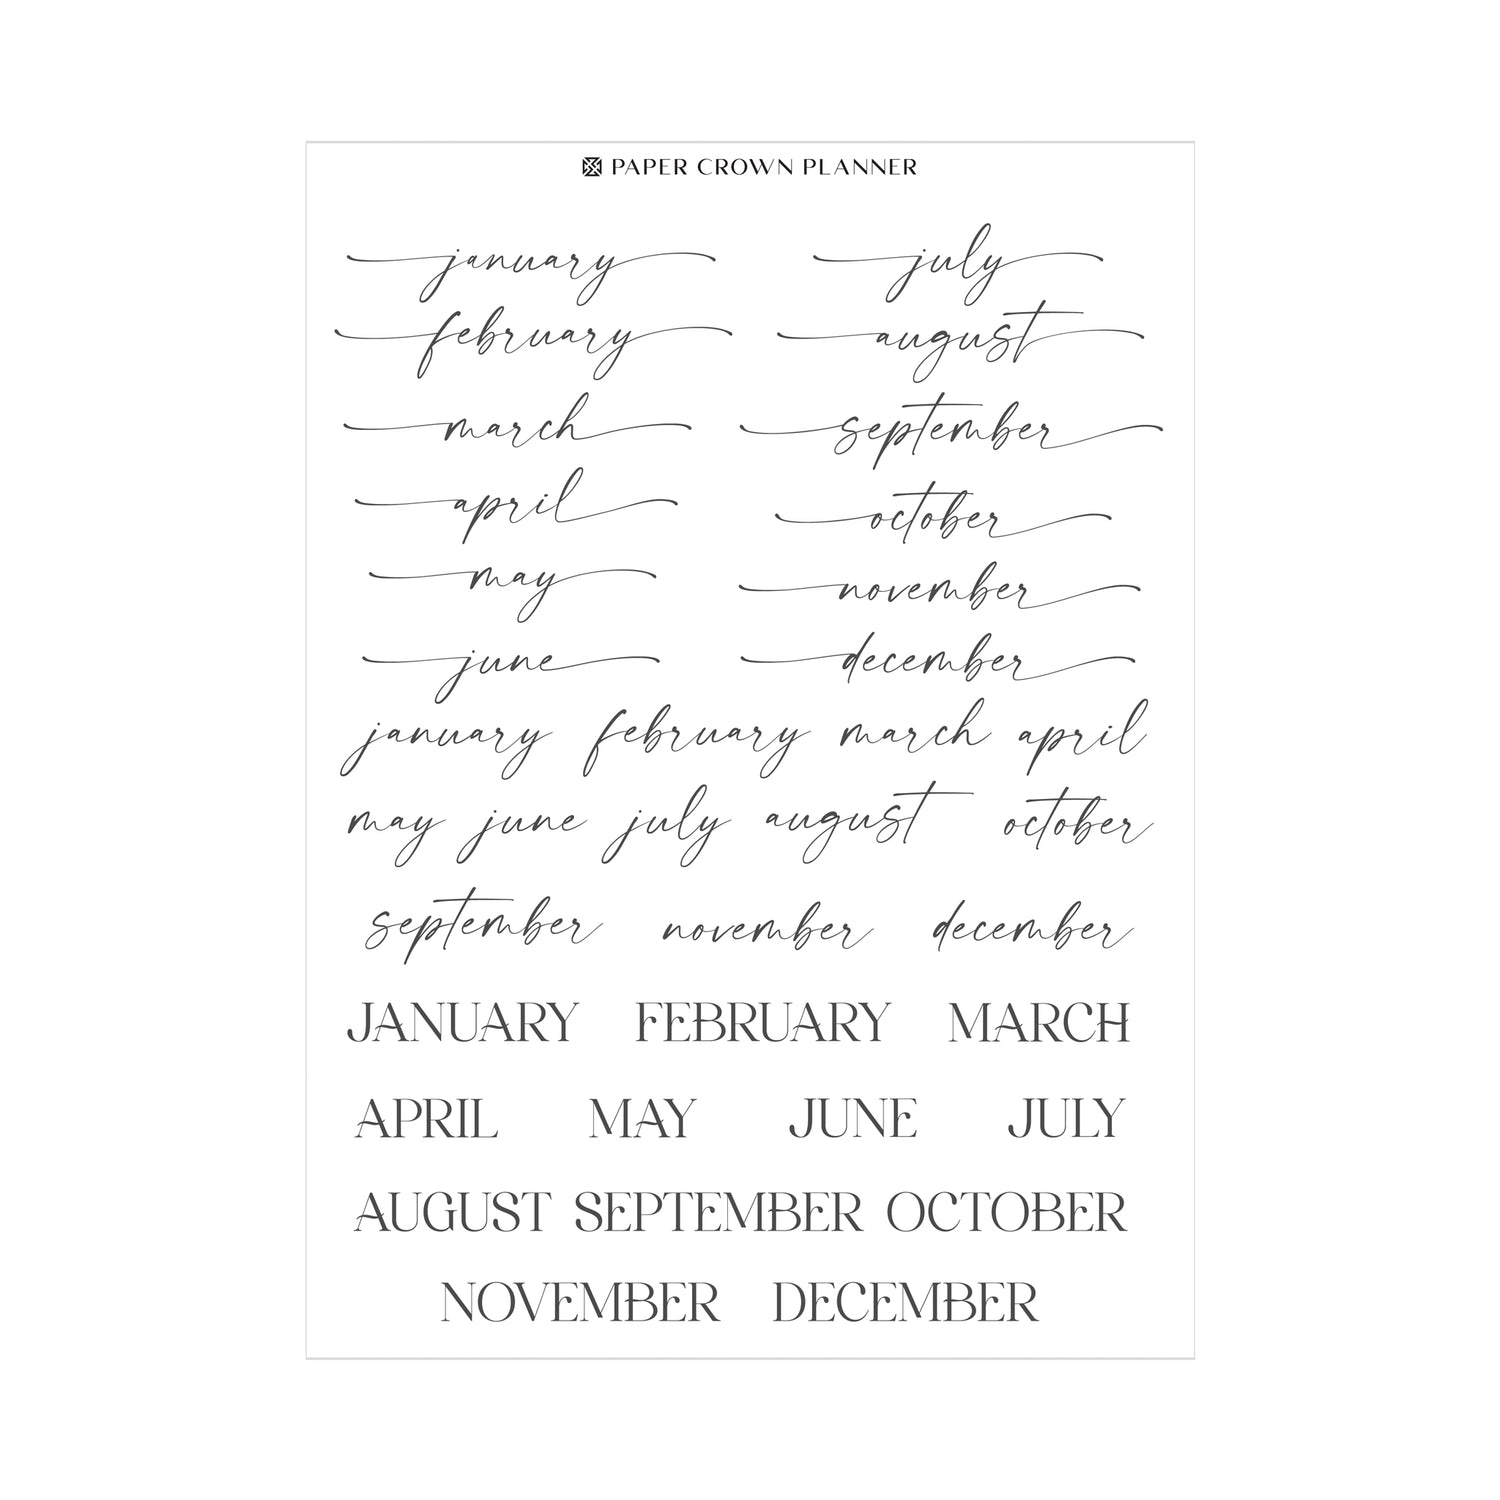 PAPER CROWN PLANNER
january
february
march
april
may
june
july
august
september
october
november
december
january february march april
may june july august october
september november december
JANUARY FEBRUARY MARCH
APRIL MAY JUNE JULY
AUGUST SEPTEMBER OCTOBER
NOVEMBER DECEMBER